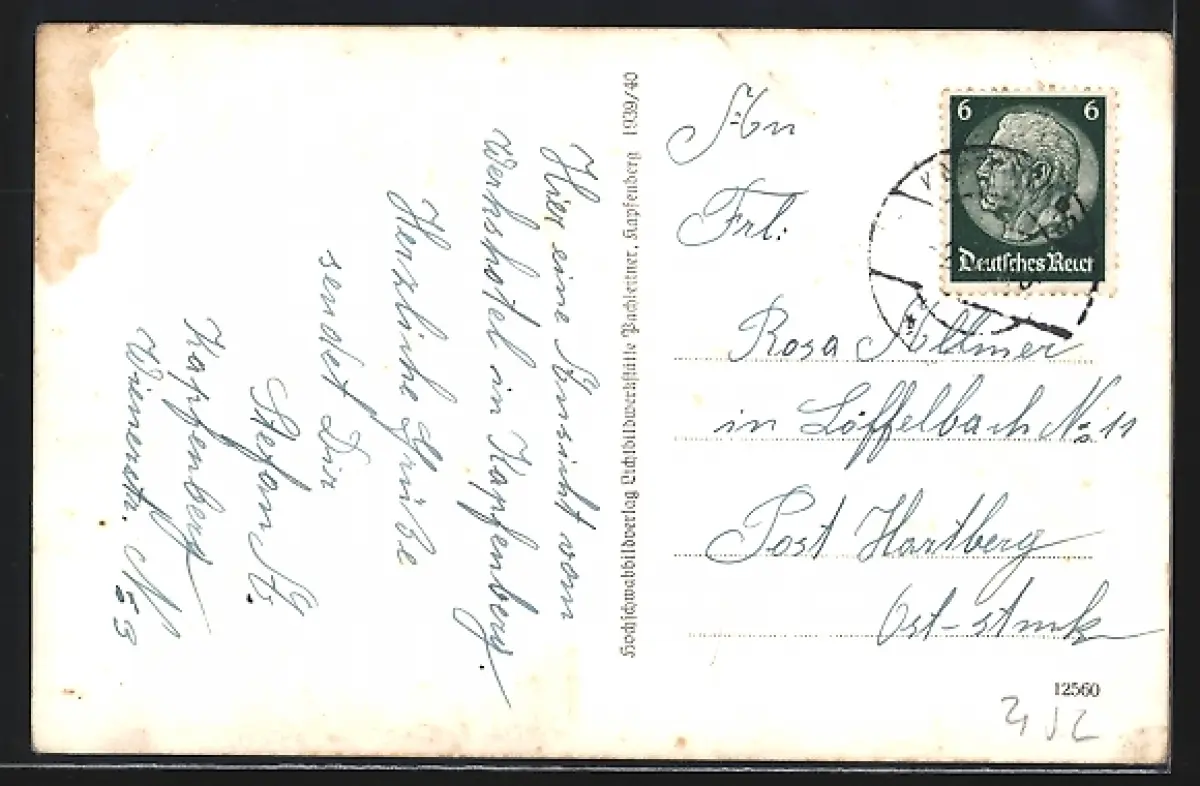 Hier eine Ansicht vom
Werkshotel in Kapfenberg.
Herzliche Grüße
sendet Dir
Stefan A.
Kapfenberg
Wienerstr. N 53
Hochschwabbildverlag Lichtbildwerkstätte Puchleitner, Kapfenberg 1939/40
An
Frl:
Rosa
in Löffelbach No 11
Post Hartberg
Ost-stmk
6 6
Deutsches Reich
12560